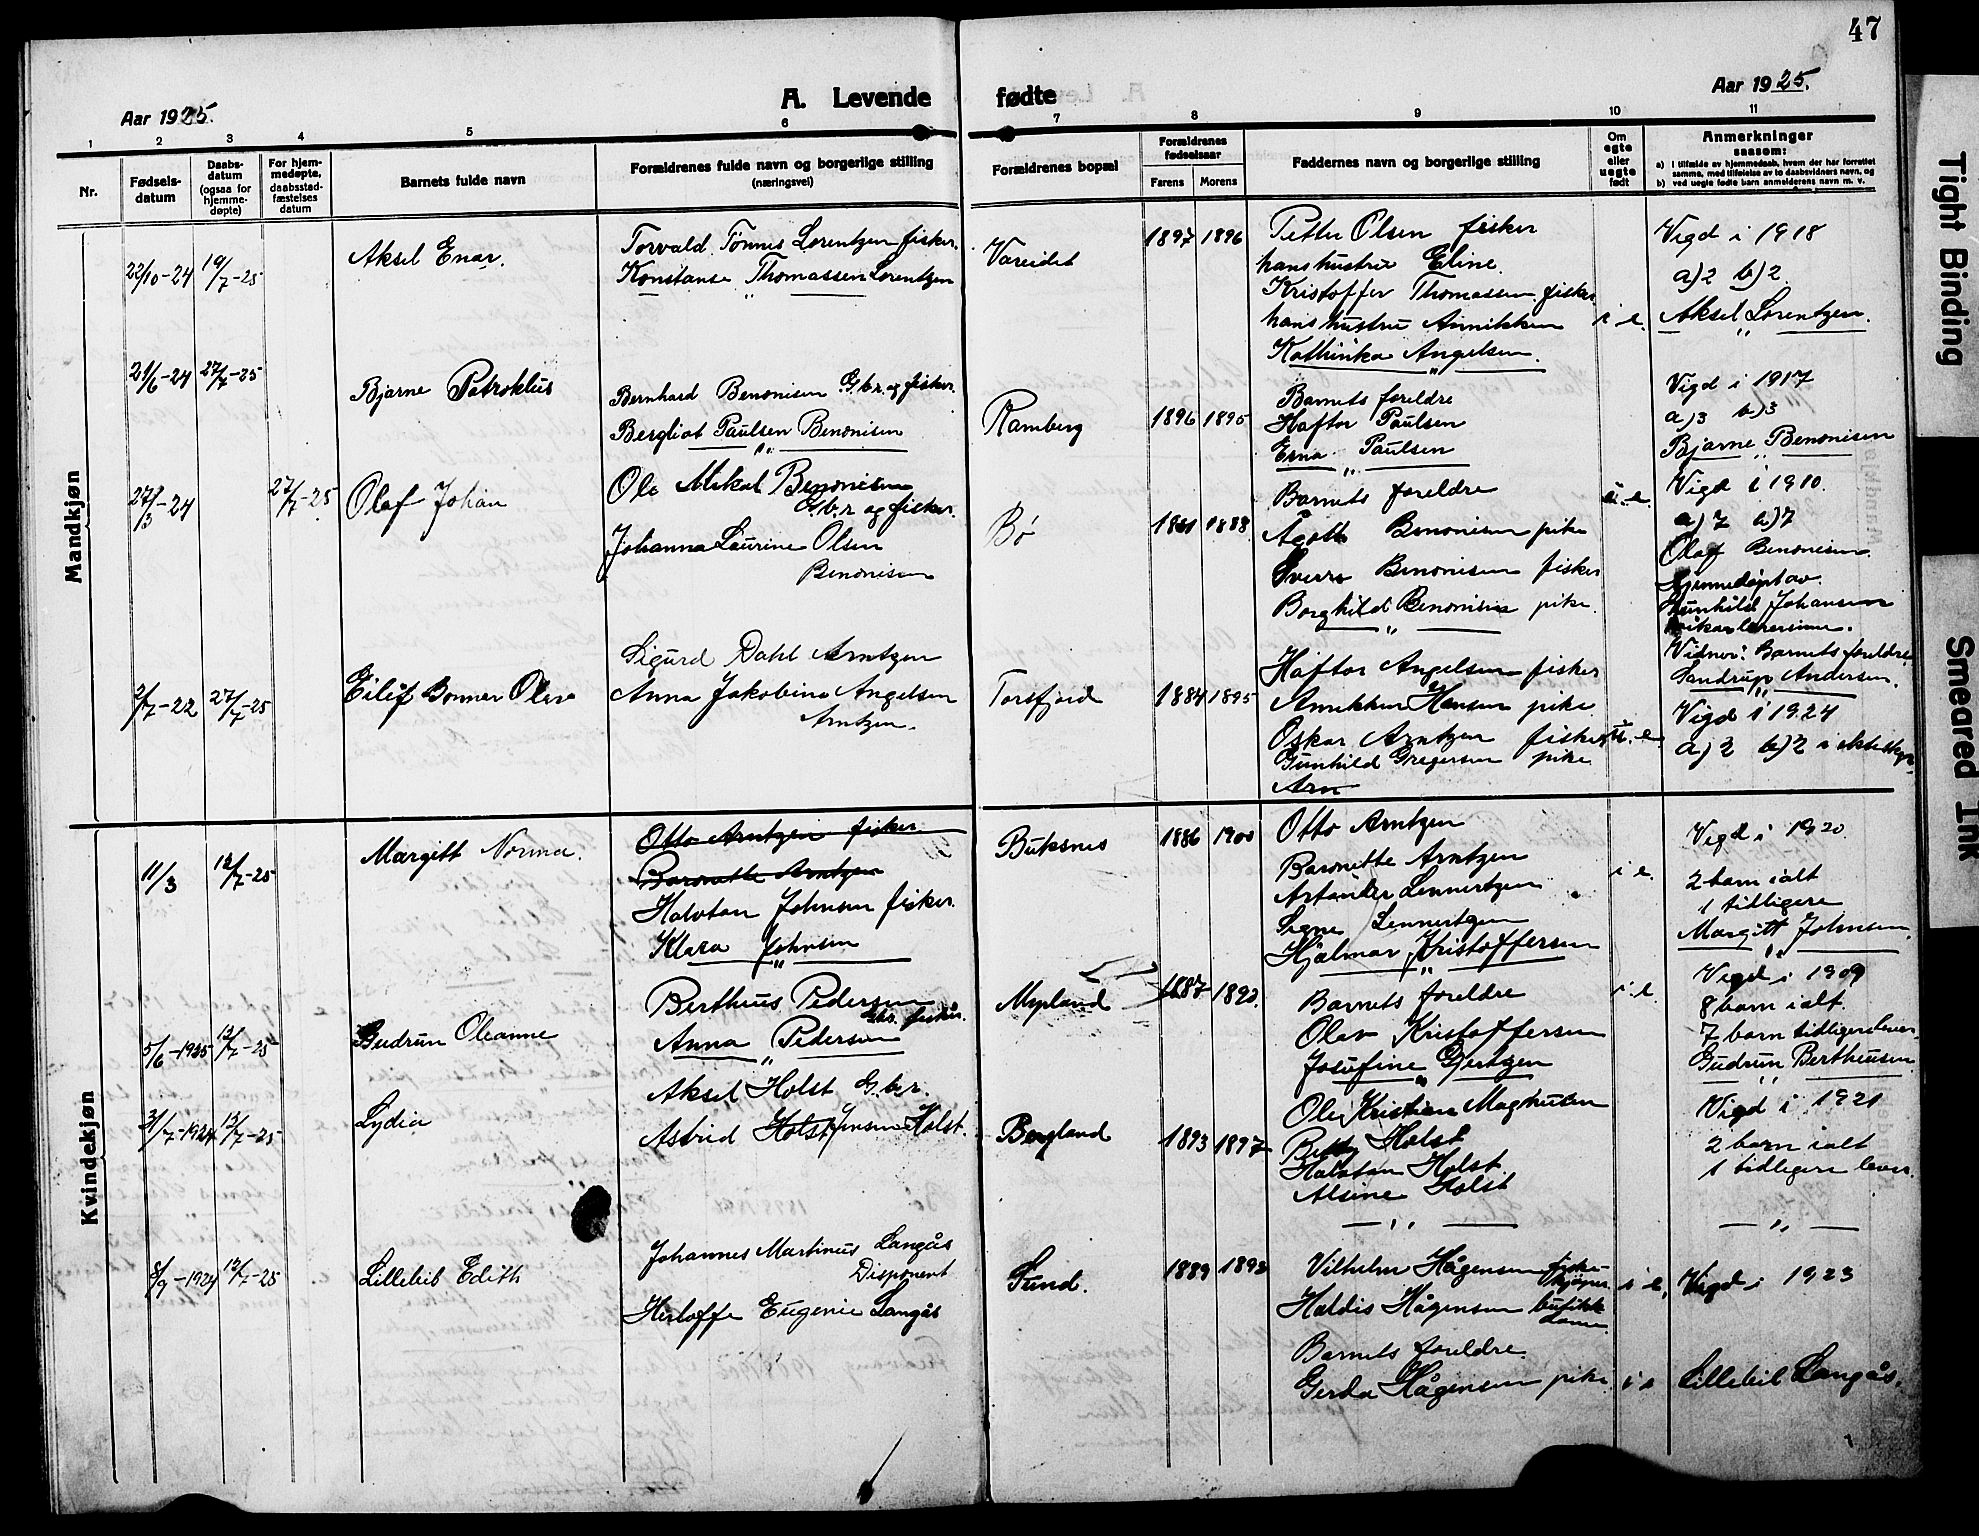 47
Aar 1925.
A. Levende fødte
Aar 1925.
1 2 3 4 5 6 7 8 9 10 11
Nr.
Fødsels-
datum
Daabs-
datum
(ogsaa for
hjemme-
døpte)
For hjem-
medøpte,
daabsstad-
fæstelses
datum
Barnets fulde navn
Forældrenes fulde navn og borgerlige stilling
(næringsvei)
Forældrenes bopæl
Forældrenes
fødselsaar
Farens Morens
Faddernes navn og borgerlige stilling
Om
egte
eller
uegte
født
Anmerkninger
saasom:
a) i tilfælde av hjemmedaab, hvem der har forrettet
samme, med tilføielse av to daabsvidners navn, og
b) ved uegte fødte barn anmelderens navn m. v.
Mandkjøn
22/10-24 19/7-25
Aksel Enar.
Torvald Tønnes Lorentzen fisker.
Konstanse Thomassen Lorentzen
Vareidet
1897 1896
Petter Olsen fisker
hans hustru Eline.
Kristoffer Thomassen fisker
hans hustru Annikken
Kathinka Angelsen.
i e.
Vigd i 1918
a) 2 b) 2.
Aksel Lorentzen.
21/6-24 27/7-25
Bjarne Patroklus
Bernhard Benonisen G.b.r. og fisker.
Bergliot Paulsen Benonisen
Ramberg
1896 1895
Barnets foreldre
Haftor Paulsen
Erna Paulsen
Vigd i 1917
a) 3 b) 3
Bjarne Benonisen
27/3-24 27/7-25
Olaf Johan
Ole Mikal Benonisen
G.b.r og fisker.
Johanna Laurine Olsen
Benonisen
Bø
1881 1888
Barnets foreldre
Ågoth Benonisen pike
Sverre Benonisen fisker
Borghild Benonisen pike.
i e.
Vigd i 1910.
a) 7 b) 7
Olaf Benonisen.
Hjemmedøpt av
Gunhild Johansen
vikarlærerinne.
Vidner: Barnets foreldre
Sandrup Andersen.
2/7-22 27/7-25
Eilif Bonner Olea
Sigurd Dahl Arntzen
Anna Jakobine Angelsen
Arntzen.
Torsfjord
1884 1895
Haftor Angelsen fisker
Annikken Hansen pike
Oskar Arntzen fisker
Gunhild Gregersen pike
Arn
u. e.
Vigd i 1924
a) 2 b) 2 i ekteskap.
Kvindekjøn
11/3 12/7-25
Margitt Norma.
Otto Arntzen fisker
Baronette Arntzen
Halvtan Johnsen fisker.
Klara Johnsen
Buksnes
1886 1900
Otto Arntzen
Baronette Arntzen
Artander Lennertzen
Signe Lennertzen
Hjalmar Kristoffersen
i e.
Vigd i 1920.
2 barn ialt
1 tidligere
Margitt Johnsen.
5/6-1925 12/7-25
Gudrun Oleanne
Bertheus Pedersen
Gbr. fisker.
Anna Pedersen
Myrland
1887 1890.
Barnets foreldre
Olav Kristoffersen
Josefine Gjertzen
i e.
Vigd i 1909
8 barn ialt.
7 barn tidligere lever
Gudrun Bertheusen.
31/7-1924 12/7-25
Lydia
Aksel Holst G.b.r.
Astrid Holst Jensen Holst.
Bergland
1893 1897
Ole Kristian Maghusen
Betty Holst
Halvtan Holst.
Alsine Holst
Vigd i 1921
2 barn ialt
1 tidligere lever.
8/9-1924 12/7-25
Lillebil Edith
Johannes Martinus Langås
Disponent
Herloffe Eugenie Langås
Sund.
1889 1892
Vilhelm Hågensen fiske-
kjøper
Haldis Hågensen butikk
dame
Barnets foreldre.
Gerda Hågensen pike
i e.
i e
Vigd i 1923
Lillebil Langås.
Tight Binding
Smeared Ink